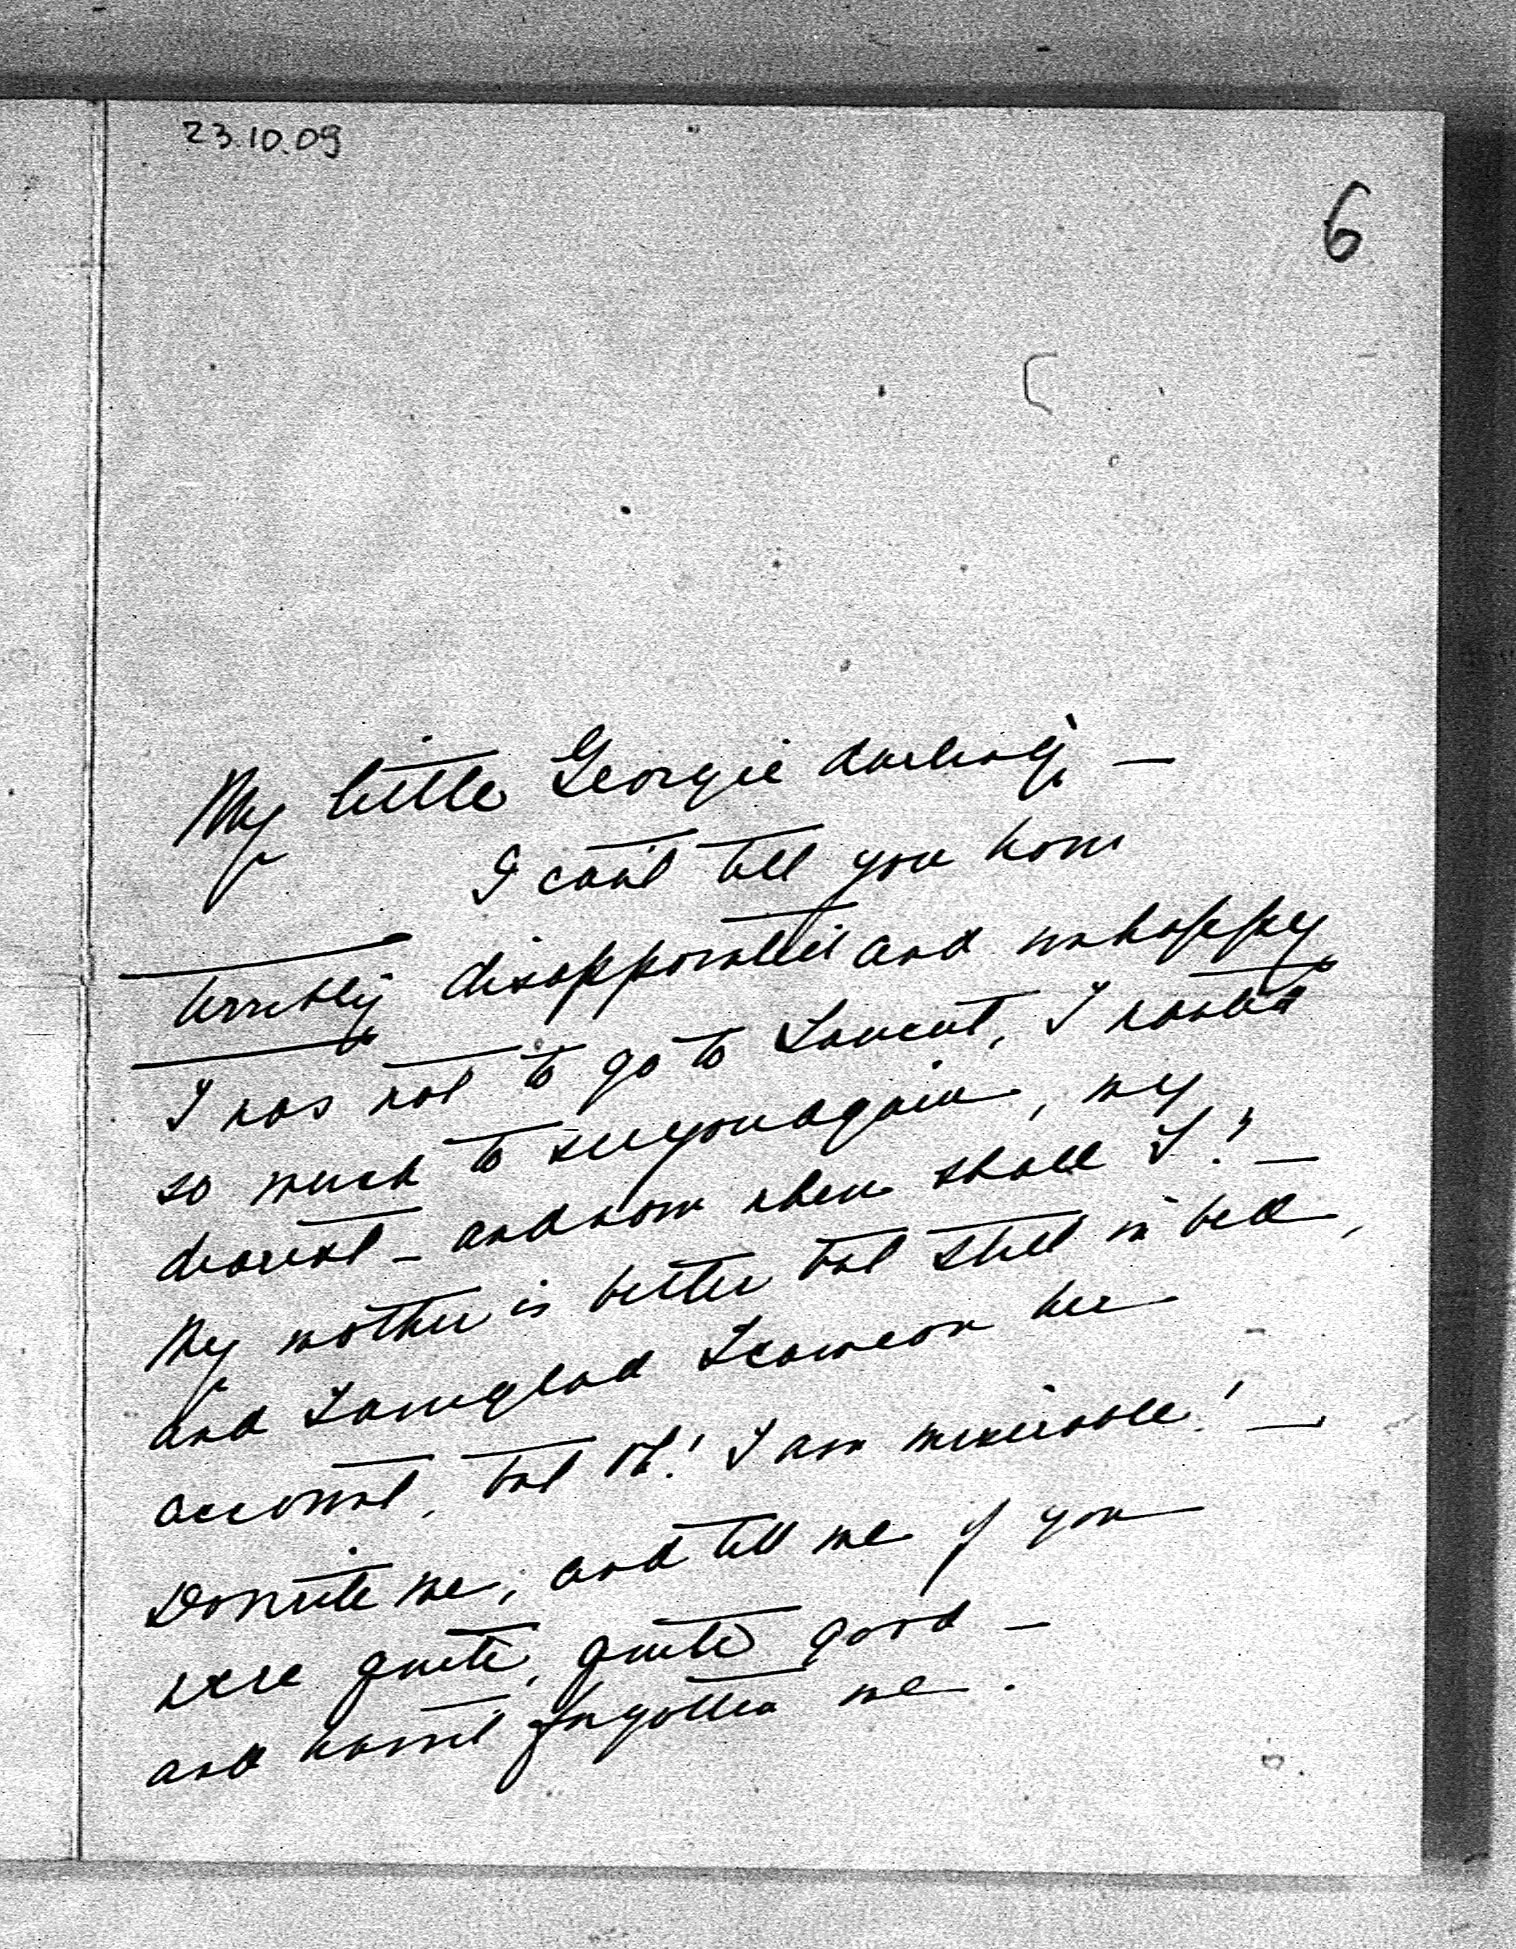 23.10.09
6
My little Georgie darling, —
I can't tell you how
terribly disappointed and unhappy
I was not to go to I wanted
so much to see you again, my
dearest – and now when shall I? —
My mother is better but still in bed,
and I am glad I came on her
account, but oh! I am miserable! —
Do write me, and tell me if you
were quite, quite good —
and havn't forgotten me.